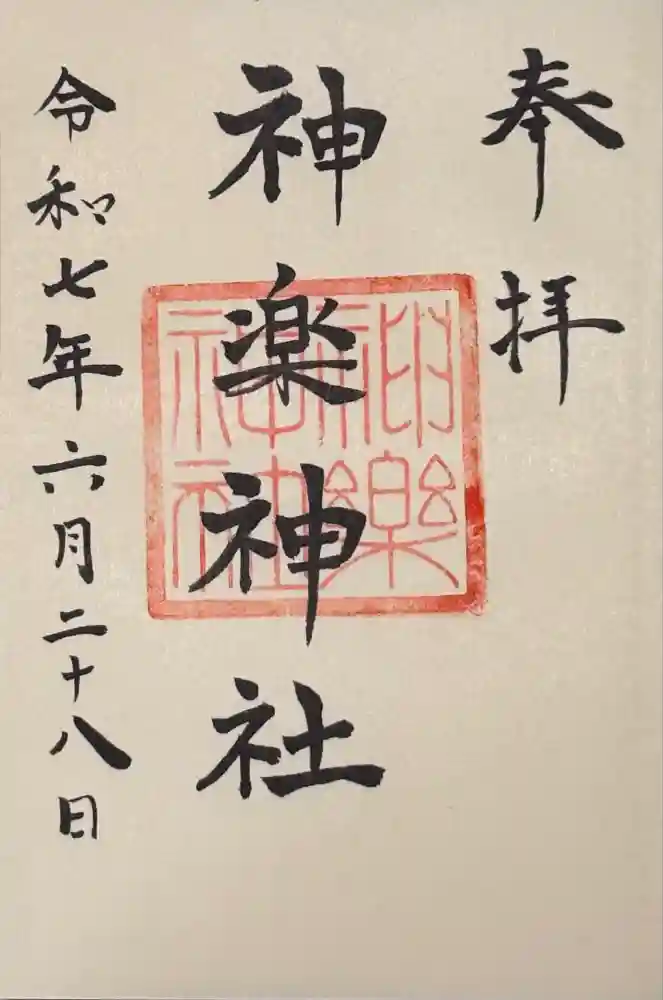 奉拝
神楽神社
神楽
神社
令和七年六月二十八日